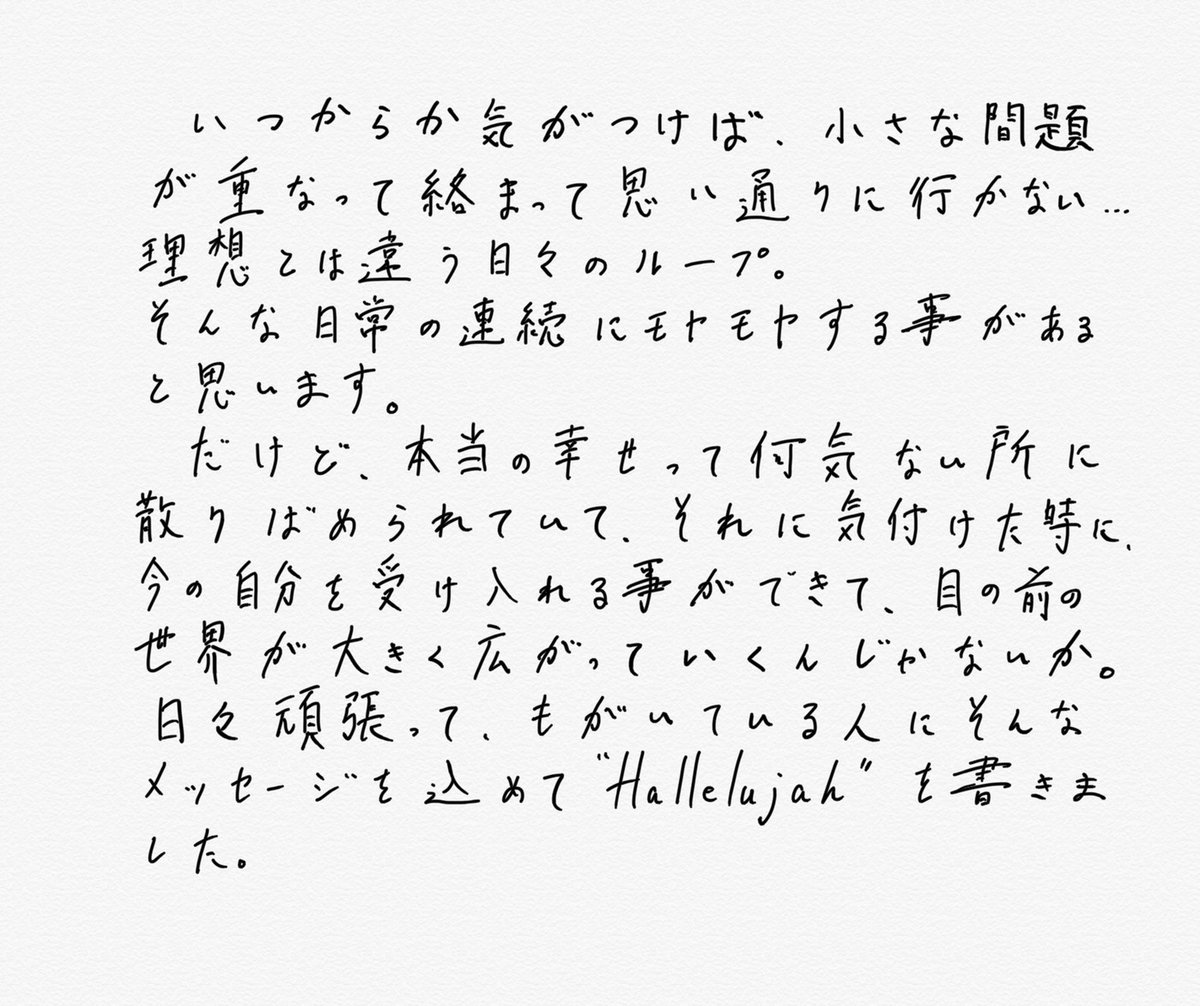 いつからか気がつけば、小さな間題
が重なって絡まって思い通りに行かない...
理想とは違う日々のループ。
そんな日常の連続にモヤモヤする事がある
と思います。
だけど、本当の幸せって何気ない所に
散りばめられていて、それに気付けた時に、
今の自分を受け入れる事ができて、目の前の
世界が大きく広がっていくんじゃないか。
日々頑張って、もがいている人にそんな
メッセージを込めて"Hallelujah"を書きま
した。